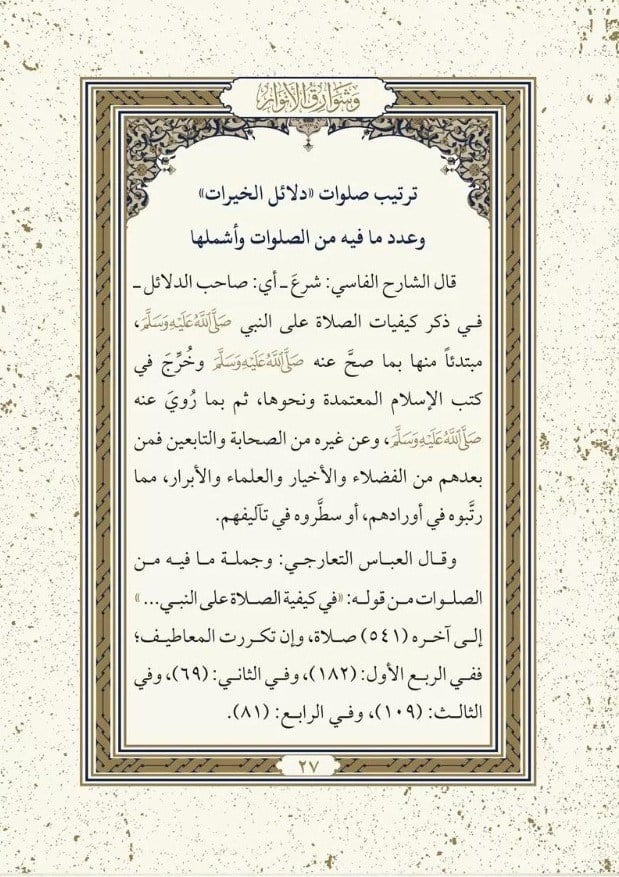 وشوارق الأنوار
ترتيب صلوات «دلائل الخيرات»
وعدد ما فيه من الصلوات وأشملها
قال الشارح الفاسي: شرعَ ـ أي: صاحب الدلائل ـ
في ذكر كيفيات الصلاة على النبي صَلَّى اللَّهُ عَلَيْهِ وَسَلَّمَ،
مبتدئاً منها بما صحَّ عنه صَلَّى اللَّهُ عَلَيْهِ وَسَلَّمَ وخُرِّجَ في
كتب الإسلام المعتمدة ونحوها، ثم بما رُويَ عنه
صَلَّى اللَّهُ عَلَيْهِ وَسَلَّمَ، وعن غيره من الصحابة والتابعين فمن
بعدهم من الفضلاء والأخيار والعلماء والأبرار، مما
رتَّبوه في أورادهم، أو سطَّروه في تآليفهم.
وقال العباس التعارجي: وجملة ما فيه من
الصلوات من قوله: «في كيفية الصلاة على النبي... »
إلى آخره (٥٤١) صلاة، وإن تكررت المعاطيف؛
ففي الربع الأول: (١٨٢)، وفي الثاني: (٦٩)، وفي
الثالث: (١٠٩)، وفي الرابع: (٨١).
٢٧